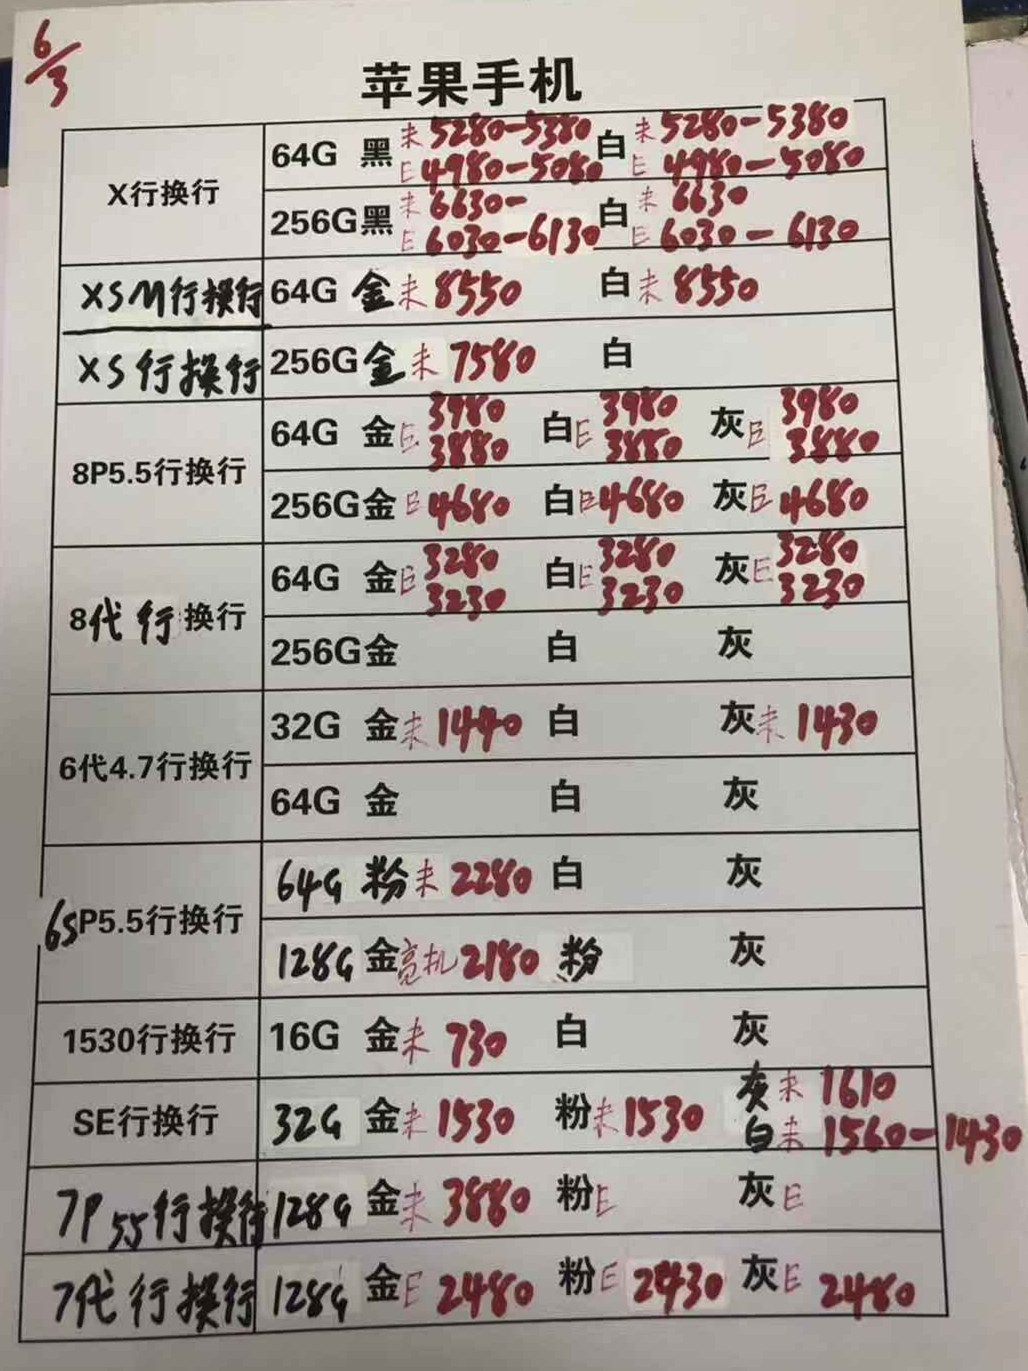 6/3
苹果手机
X行换行
64G 黑 未 5280-5380 白 未 5280-5380
E 4980-5080 E 4980-5080
256G 黑 未 6630- 白 未 6630
E 6030-6130 E 6030-6130
XSM行换行 64G 金 未 8550 白 未 8550
XS行换行 256G 金 未 7580 白
8P5.5行换行
64G 金 E 3980 白 E 3980 灰 E 3980
3880 3880 3880
256G 金 E 4680 白 E 4680 灰 E 4680
8代行换行
64G 金 E 3280 白 E 3280 灰 E 3280
3230 3230 3230
256G 金 白 灰
6代4.7行换行
32G 金 未 1440 白 灰 未 1430
64G 金 白 灰
6SP5.5行换行
64G 粉 未 2280 白 灰
128G 金 亮机 2180 粉 灰
1530行换行 16G 金 未 730 白 灰
SE行换行 32G 金 未 1530 粉 未 1530 灰 未 1610
白 未 1560-1430
7P55行换行 128G 金 未 3880 粉 E 灰 E
7代行换行 128G 金 E 2480 粉 E 2430 灰 E 2480